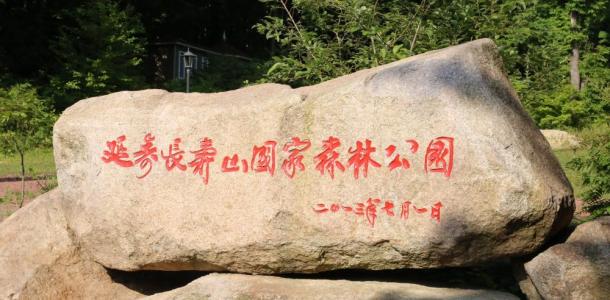 延寿長寿山國家森林公園
二〇一三年七月一日